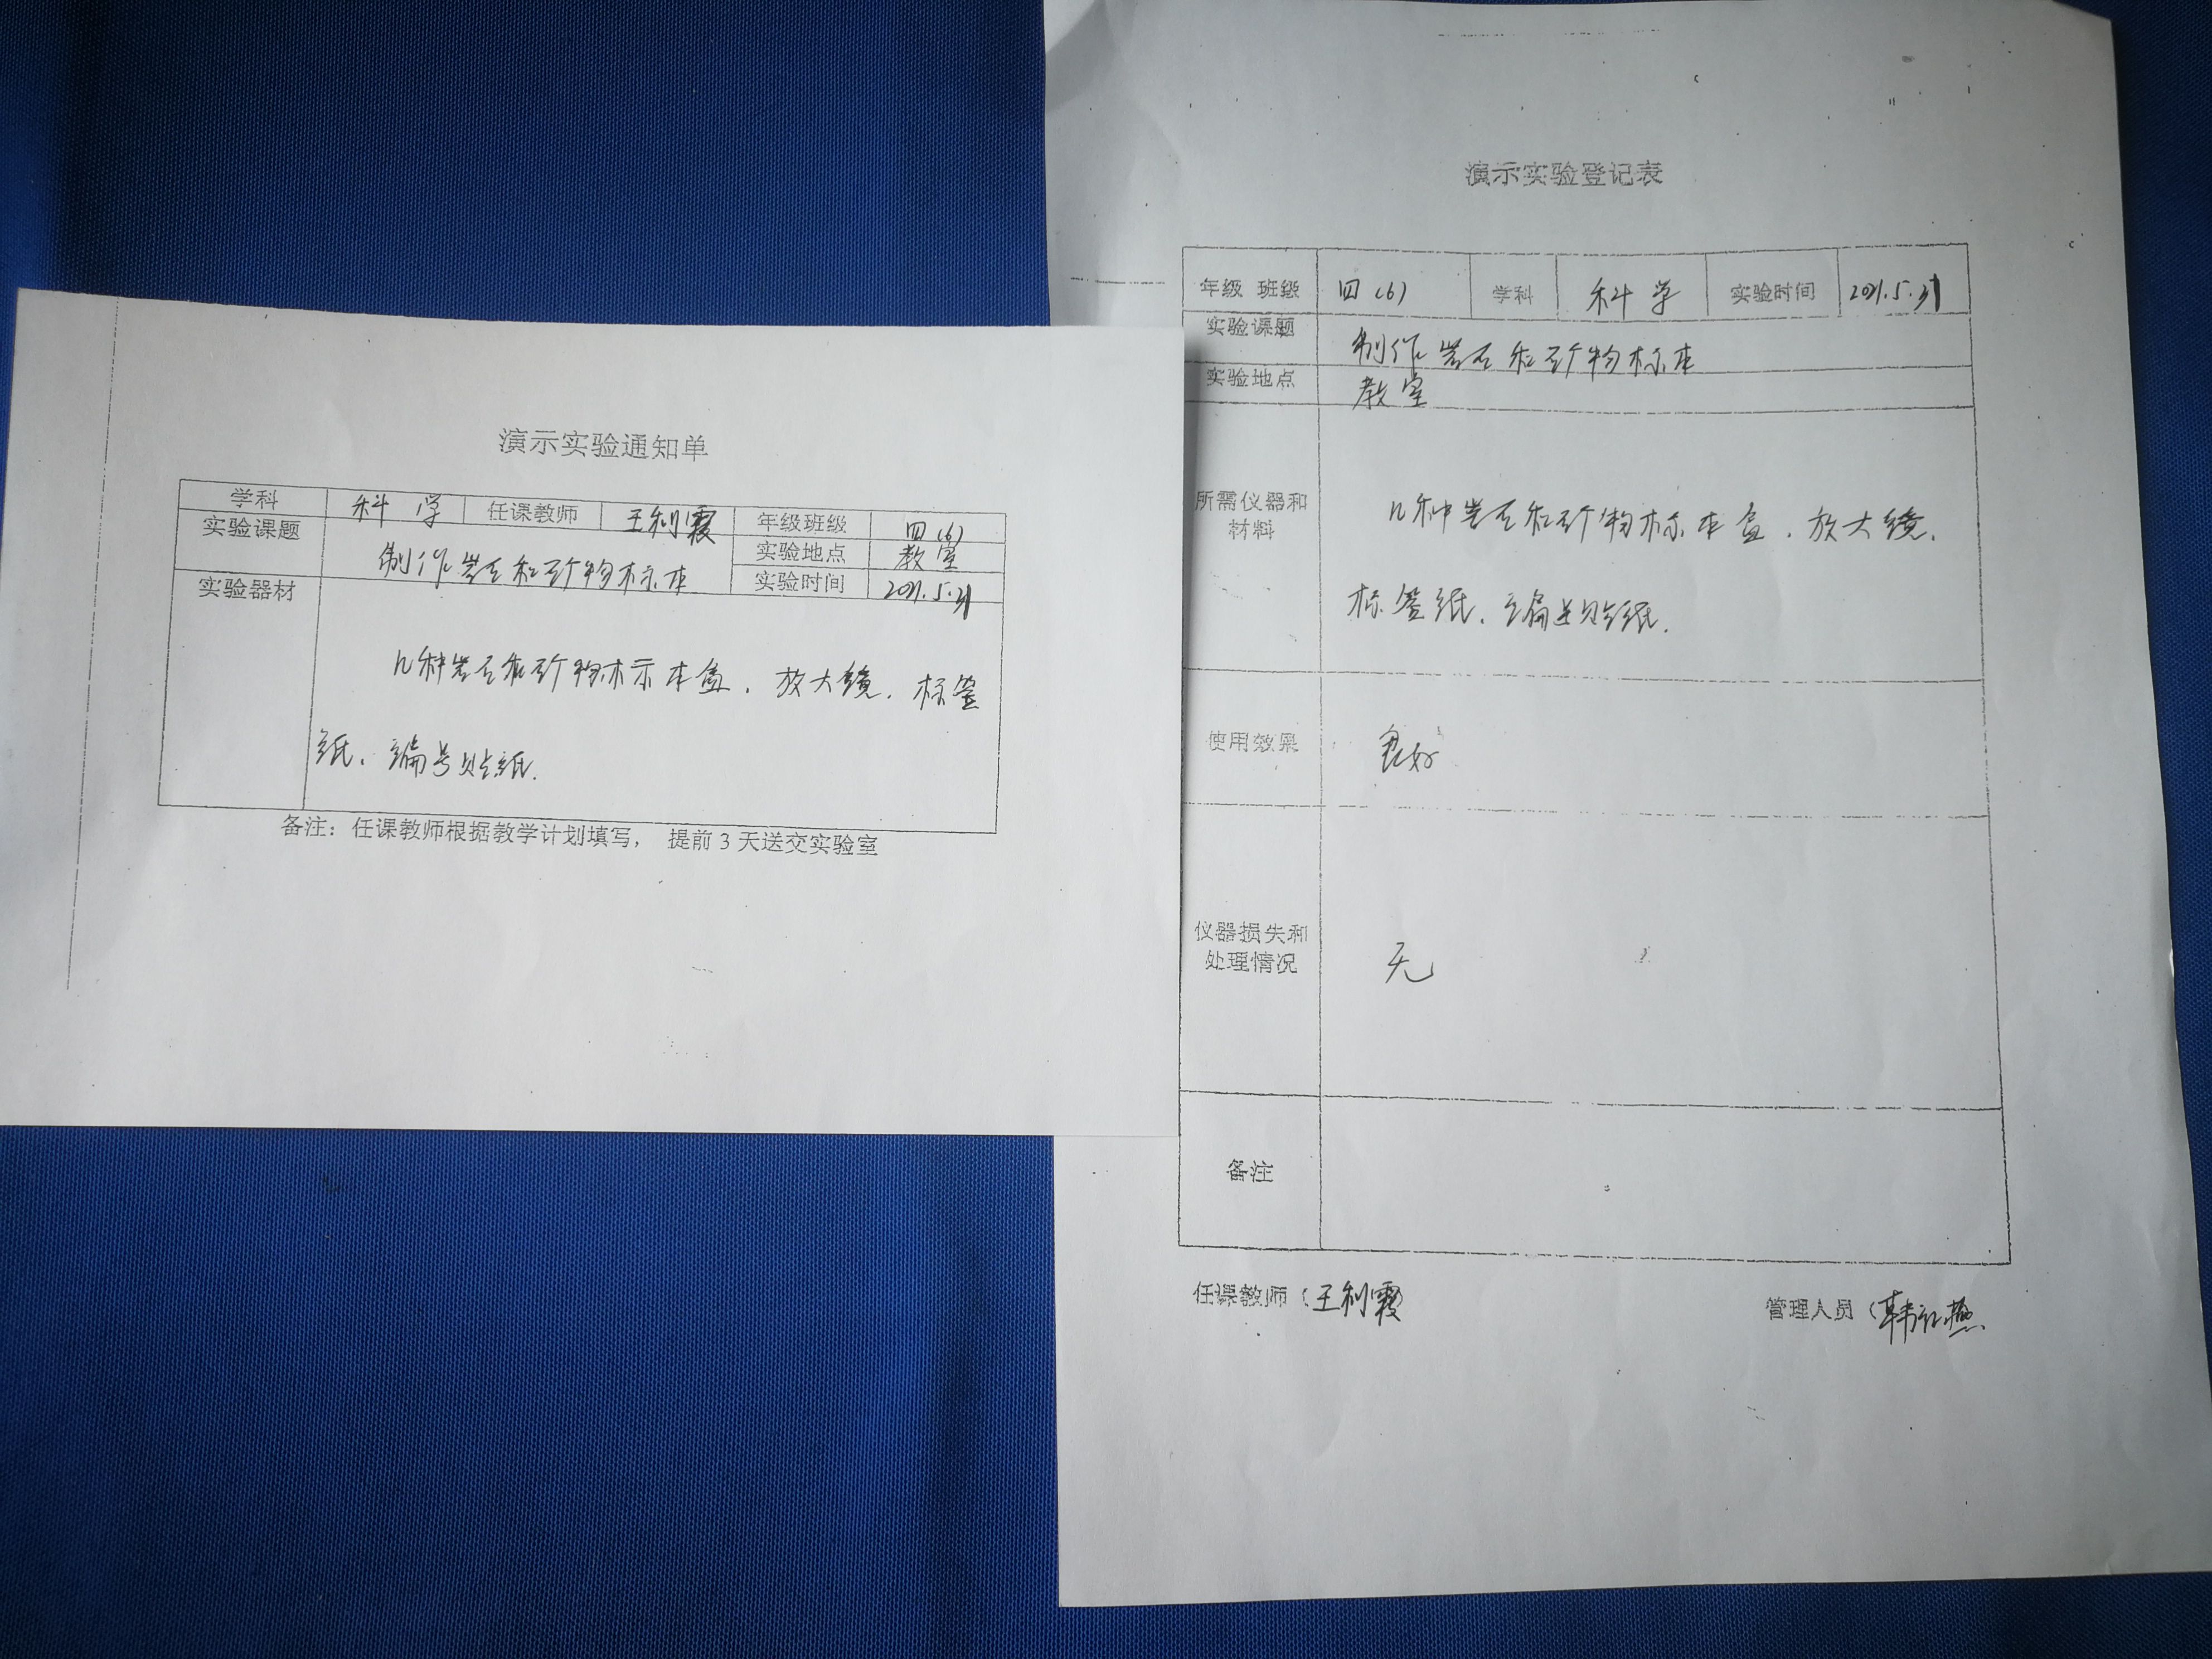 演示实验通知单
学科 科学 任课教师 王利霞 年级班级 四(6)
实验课题 制作岩石和矿物标本 实验地点 教室
实验时间 2021.5.31
实验器材
几种岩石和矿物标示本盒、放大镜、标签
纸、编号贴纸.
备注：任课教师根据教学计划填写， 提前3天送交实验室
演示实验登记表
年级 班级 四(6) 学科 科学 实验时间 2021.5.31
实验课题 制作岩石和矿物标本
实验地点 教室
所需仪器和
材料
几种岩石和矿物标本盒、放大镜、
标签纸、编号贴纸.
使用效果 良好
仪器损失和
处理情况
无
备注
任课教师（王利霞
管理人员（韩红燕